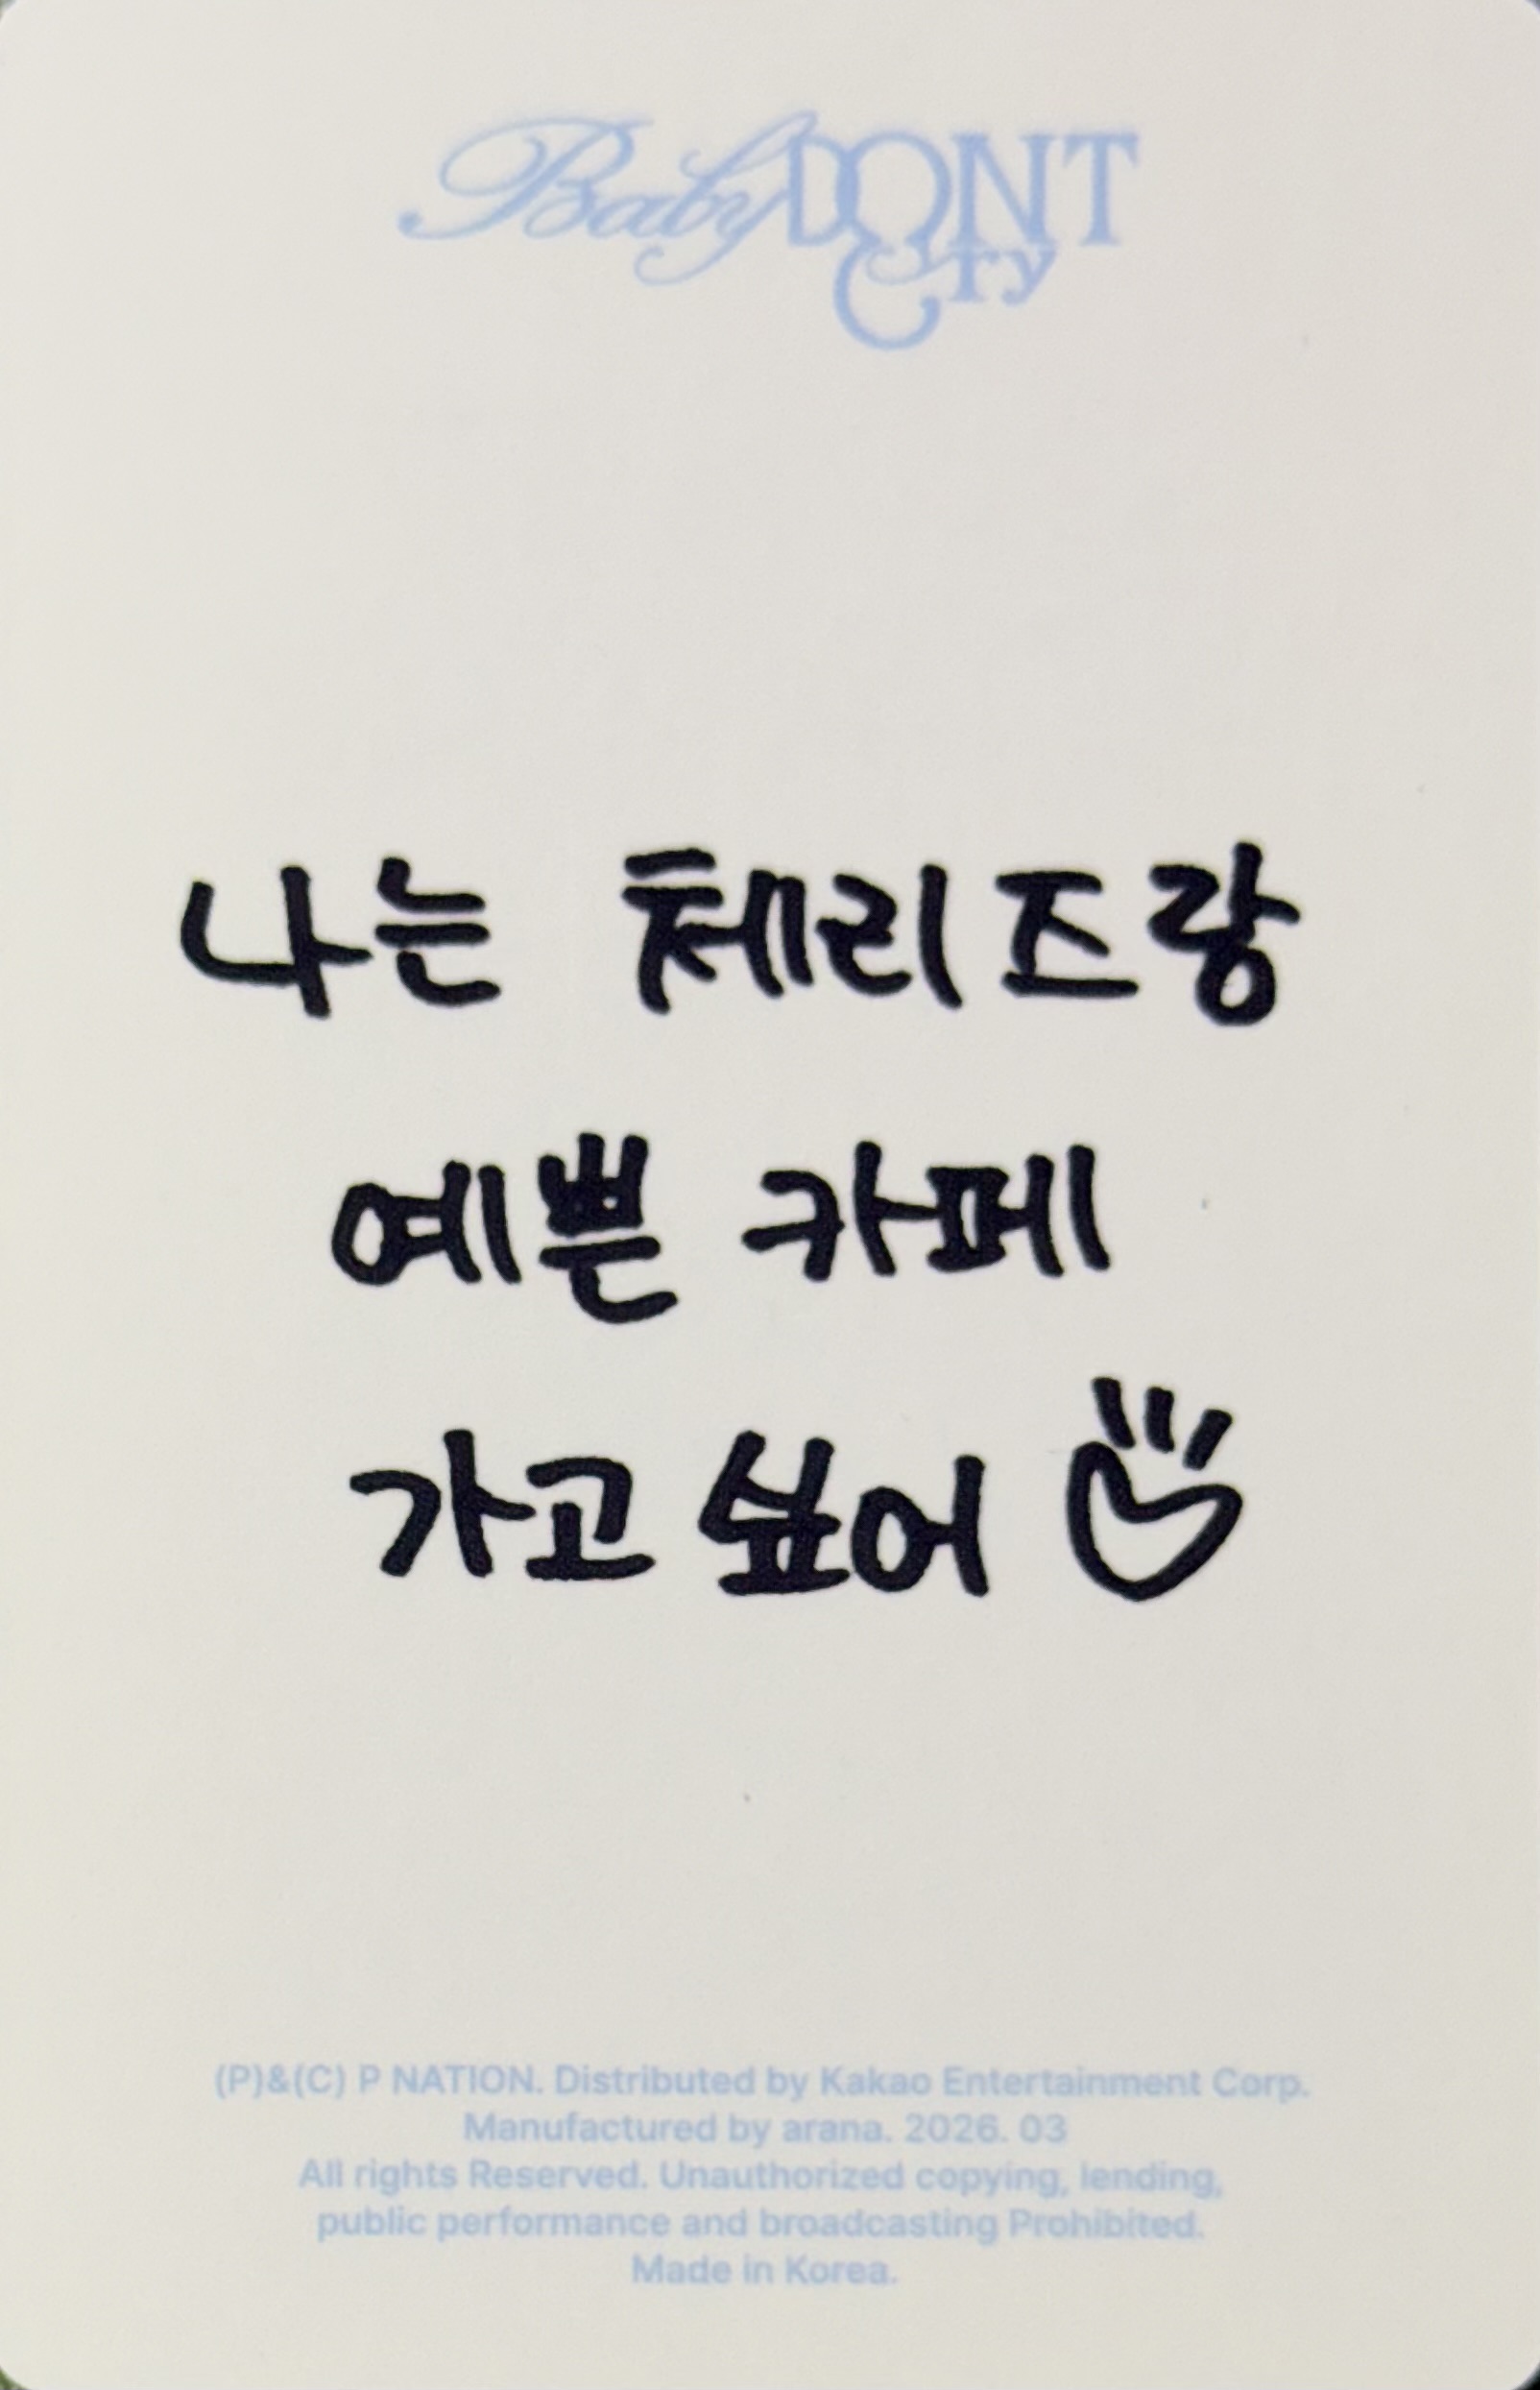 Baby DONT Cry
나는 체리즈랑
예쁜 카페
가고 싶어
(P)&(C) P NATION. Distributed by Kakao Entertainment Corp.
Manufactured by arana. 2026. 03
All rights Reserved. Unauthorized copying, lending,
public performance and broadcasting Prohibited.
Made in Korea.